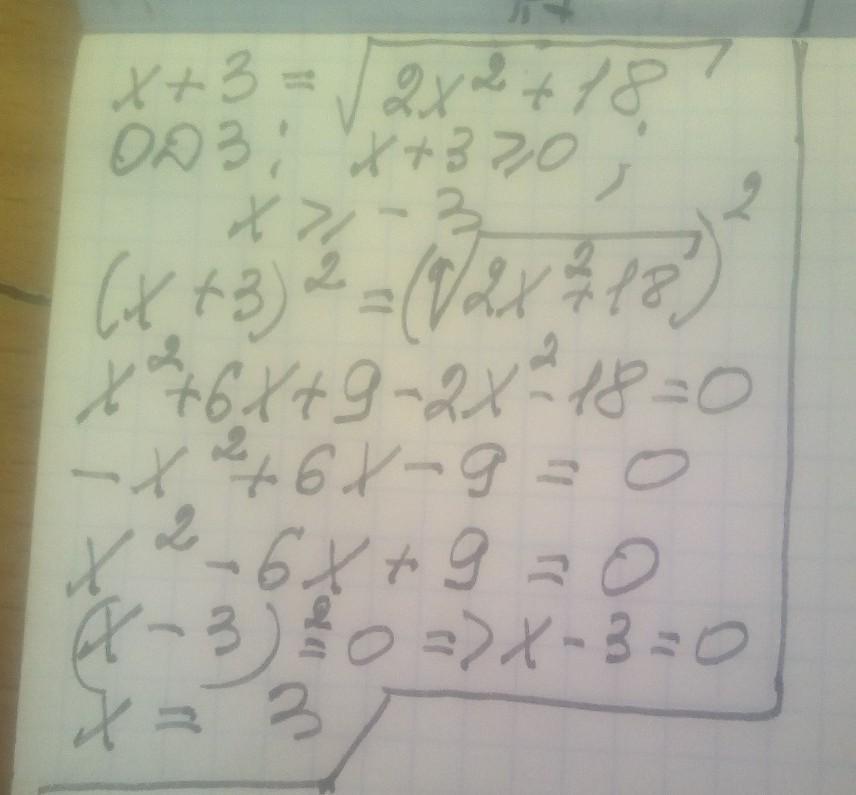 x + 3 = √(2x² + 18)
ОДЗ: x + 3 ≥ 0 ;
x ≥ - 3
(x + 3)² = (√(2x² + 18))²
x² + 6x + 9 - 2x² - 18 = 0
- x² + 6x - 9 = 0
x² - 6x + 9 = 0
(x - 3)² = 0 => x - 3 = 0
x = 3